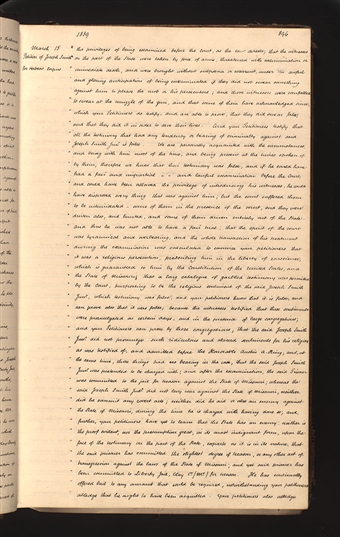 1839
896
March 15
Petition of Joseph Smith
for Habeas Corpus
" the privilege of being examined before the court, as the law directs; that the witnesses
" on the part of the State were taken by force of arms, threatened with extermination or
" immediate death, and were brought without subpœna or warrant, under the awful
" and glaring anticipation of being exterminated if they did not swear something
" against him to please the mob or his persecutors; and those witnesses were compelled
" to swear at the muzzle of the gun, and that some of them have acknowledged since,
" which your Petitioners do testify, and are able to prove, that they did swear false,
" and that they did it in order to save their lives. And your Petitioners testify that
" all the testimony that had any tendency or bearing of criminality against said
" Joseph Smith Jun. is false. We are personally acquainted with the circumstances,
" and being with him most of the time, and being present at the times spoken of
" by them, therefore we know that their testimony was false; and if he could have
" had a fair and impartial and lawful examination before the court,
" and could have been allowed the privilege of introducing his witnesses, he could
" have disproved every thing that was against him; but the court suffered them
" to be intimidated, some of them in the presence of the court, and they were
" driven also, and hunted, and some of them driven entirely out of the State.
" And thus he was not able to have a fair trial; that the spirit of the court
" was tyrannical and overbearing, and the whole transaction of his treatment
" during the examination was calculated to convince your petitioners that
" it was a religious persecution, proscribing him in the liberty of conscience,
" which is guaranteed to him by the Constitution of the United States, and
" the State of Missouri; that a long catalogue of garbled testimony was permitted
" by the Court, purporting to be the religious sentiment of the said Joseph Smith
" Jun., which testimony was false, and your petitioners know that it is false, and
" can prove also that it was false; because the witnesses testified that those sentiments
" were promulgated on certain days, and in the presence of large congregations;
" and your Petitioners can prove by those congregations, that the said Joseph Smith
" Jun. did not promulge such ridiculous and absurd sentiments for his religion
" as was testified of, and admitted before the Honorable Austin A. King; and at
" the same time, those things had no bearing in the case, that the said Joseph Smith
" Jun. was pretended to be charged with; and after the examination, the said Prisoner
" was committed to the jail for treason against the State of Missouri; whereas the
" said Joseph Smith Jun. did not levy war against the State of Missouri; neither
" did he commit any overt acts; neither did he aid or abet an enemy against
" the State of Missouri, during the time he is charged with having done so; and
" further, your petitioners have yet to learn that the State has an enemy; neither is
" the proof evident, nor the presumption great, in its most malignant form, upon the
" face of the testimony on the part of the State, exparte as it is in its nature, that
" the said prisoner has committed the slightest degree of treason, or any other act of
" transgression against the laws of the State of Missouri; and yet said prisoner has
" been committed to Liberty jail, Clay Co. for treason. He has continually
" offered bail to any amount that could be required, notwithstanding your petitioners
" alledge that he ought to have been acquitted. Your petitioners also alledge